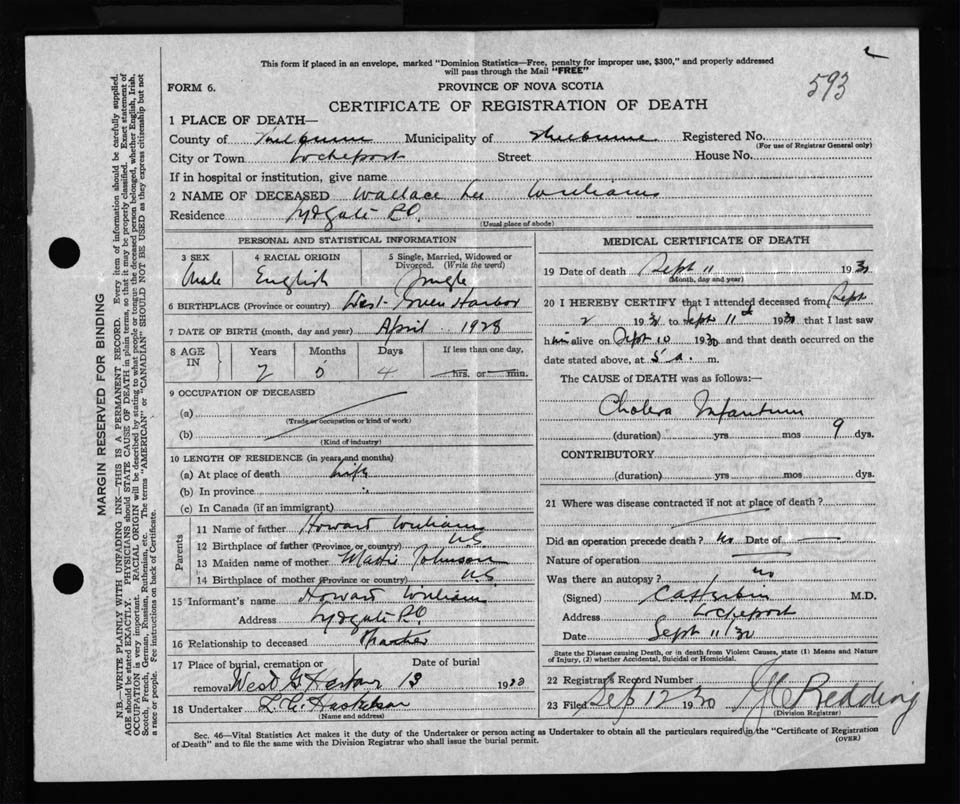 This form if placed in an envelope, marked "Dominion Statistics—Free, penalty for improper use, $300," and properly addressed
will pass through the Mail "FREE"
593
FORM 6.
PROVINCE OF NOVA SCOTIA
CERTIFICATE OF REGISTRATION OF DEATH
1 PLACE OF DEATH—
County of Shelburne Municipality of Shelburne Registered No.
(For use of Registrar General only)
City or Town Lockeport Street House No.
If in hospital or institution, give name
2 NAME OF DECEASED Wallace Lee Williams
Residence Lydgate P.O.
(Usual place of abode)
PERSONAL AND STATISTICAL INFORMATION
3 SEX 4 RACIAL ORIGIN 5 Single, Married, Widowed or
Divorced. (Write the word)
Male English Single
6 BIRTHPLACE (Province or country) West Green Harbor
7 DATE OF BIRTH (month, day and year) April 1928
8 AGE IN Years Months Days If less than one day,
2 5 4 hrs. or min.
9 OCCUPATION OF DECEASED
(a)
(Trade or occupation or kind of work)
(b)
(Kind of industry)
10 LENGTH OF RESIDENCE (in years and months)
(a) At place of death life
(b) In province
(c) In Canada (if an immigrant)
Parents
11 Name of father Howard Williams
12 Birthplace of father (Province or country) N.S.
13 Maiden name of mother Johnson
14 Birthplace of mother (Province or country) N.S.
15 Informant's name Howard Williams
Address Lydgate P.O.
16 Relationship to deceased Father
17 Place of burial, cremation or Date of burial
removal West G. Harbor 13 193
18 Undertaker L. G.
(Name and address)
MEDICAL CERTIFICATE OF DEATH
19 Date of death Sept 11 1930
(Month, day and year)
20 I HEREBY CERTIFY that I attended deceased from Sept
2 1930 to Sept 11th 1930 that I last saw
him alive on Sept 10 1930 and that death occurred on the
date stated above, at 5 a. m.
The CAUSE of DEATH was as follows:—
Cholera Infantum
(duration) yrs mos 9 dys.
CONTRIBUTORY
(duration) yrs. mos. dys.
21 Where was disease contracted if not at place of death?
Did an operation precede death? no Date of
Nature of operation
Was there an autopsy? no
(Signed) M.D.
Address Lockeport
Date Sept 11/30
State the Disease causing Death, or in death from Violent Causes, state (1) Means and Nature
of Injury, (2) whether Accidental, Suicidal or Homicidal.
22 Registrar's Record Number
23 Filed Sep 12 1930 Redding
(Division Registrar)
Sec. 46—Vital Statistics Act makes it the duty of the Undertaker or person acting as Undertaker to obtain all the particulars required in the "Certificate of Registration
of Death" and to file the same with the Division Registrar who shall issue the burial permit.
(OVER)
MARGIN RESERVED FOR BINDING
N.B.—WRITE PLAINLY WITH UNFADING INK—THIS IS A PERMANENT RECORD. Every item of information should be carefully supplied.
AGE should be stated EXACTLY. PHYSICIANS should STATE CAUSE OF DEATH in plain terms, so that it may be properly classified. Exact statement of
OCCUPATION is very important. RACIAL ORIGIN will be described by stating to what people or tongue the deceased person belonged, whether English, Irish,
Scotch, French, German, Russian, Ruthenian, etc. The terms "AMERICAN" or "CANADIAN" SHOULD NOT BE USED as they express citizenship but not
a race or people. Fee instructions on back of Certificate.